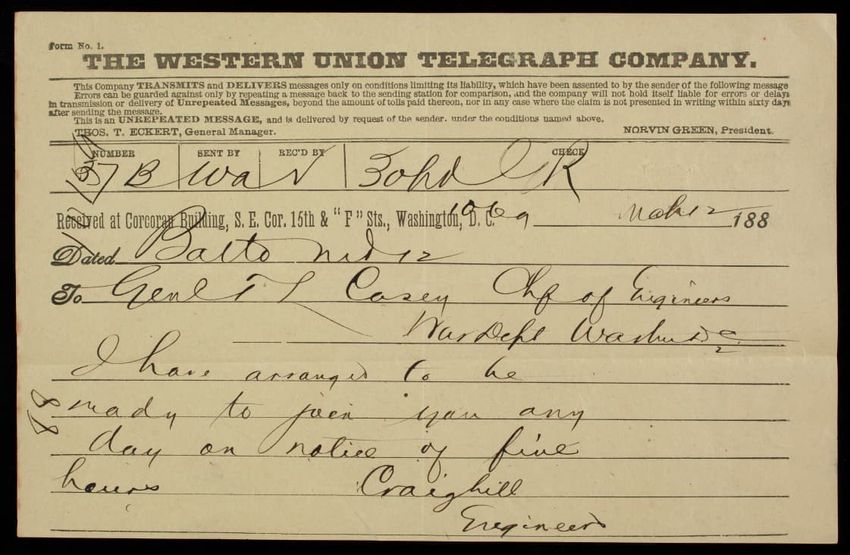 Form No. 1.
THE WESTERN UNION TELEGRAPH COMPANY.
This Company TRANSMITS and DELIVERS messages only on conditions limiting its liability, which have been assented to by the sender of the following message
Errors can be guarded against only by repeating a message back to the sending station for comparison, and the company will not hold itself liable for errors or delays
in transmission or delivery of Unrepeated Messages, beyond the amount of tolls paid thereon, nor in any case where the claim is not presented in writing within sixty days
after sending the message.
This is an UNREPEATED MESSAGE, and is delivered by request of the sender. under the conditions named above.
THOS. T. ECKERT, General Manager. NORVIN GREEN, President.
NUMBER SENT BY REC'D BY CHECK
B Wa
Received at Corcoran Building, S. E. Cor. 15th & "F" Sts., Washington, D. C. 188
Dated Balto Md 12
To Genl T L Casey Chf of Engineers
War Dept Washn D C
I have arranged to be
ready to join you any
day on notice of five
hours Craighill
Engineers